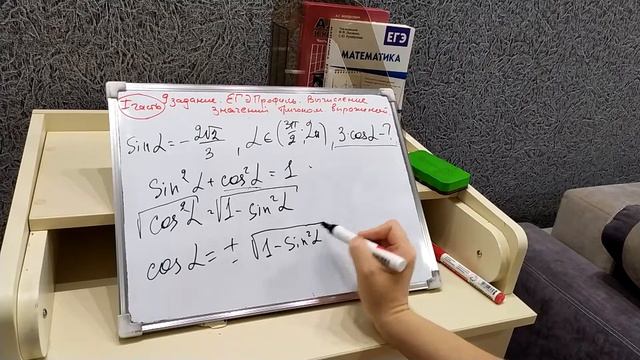 ЕГЭ
МАТЕМАТИКА
I часть 9 задание. ЕГЭ Профиль. Вычисление
значений тригоном. выражений
sin α = - 2√2/3 , α ∈ (3π/2; 2π), 3·cos α - ?
sin² α + cos² α = 1
√cos² α = √1 - sin² α
cos α = ± √1 - sin² α